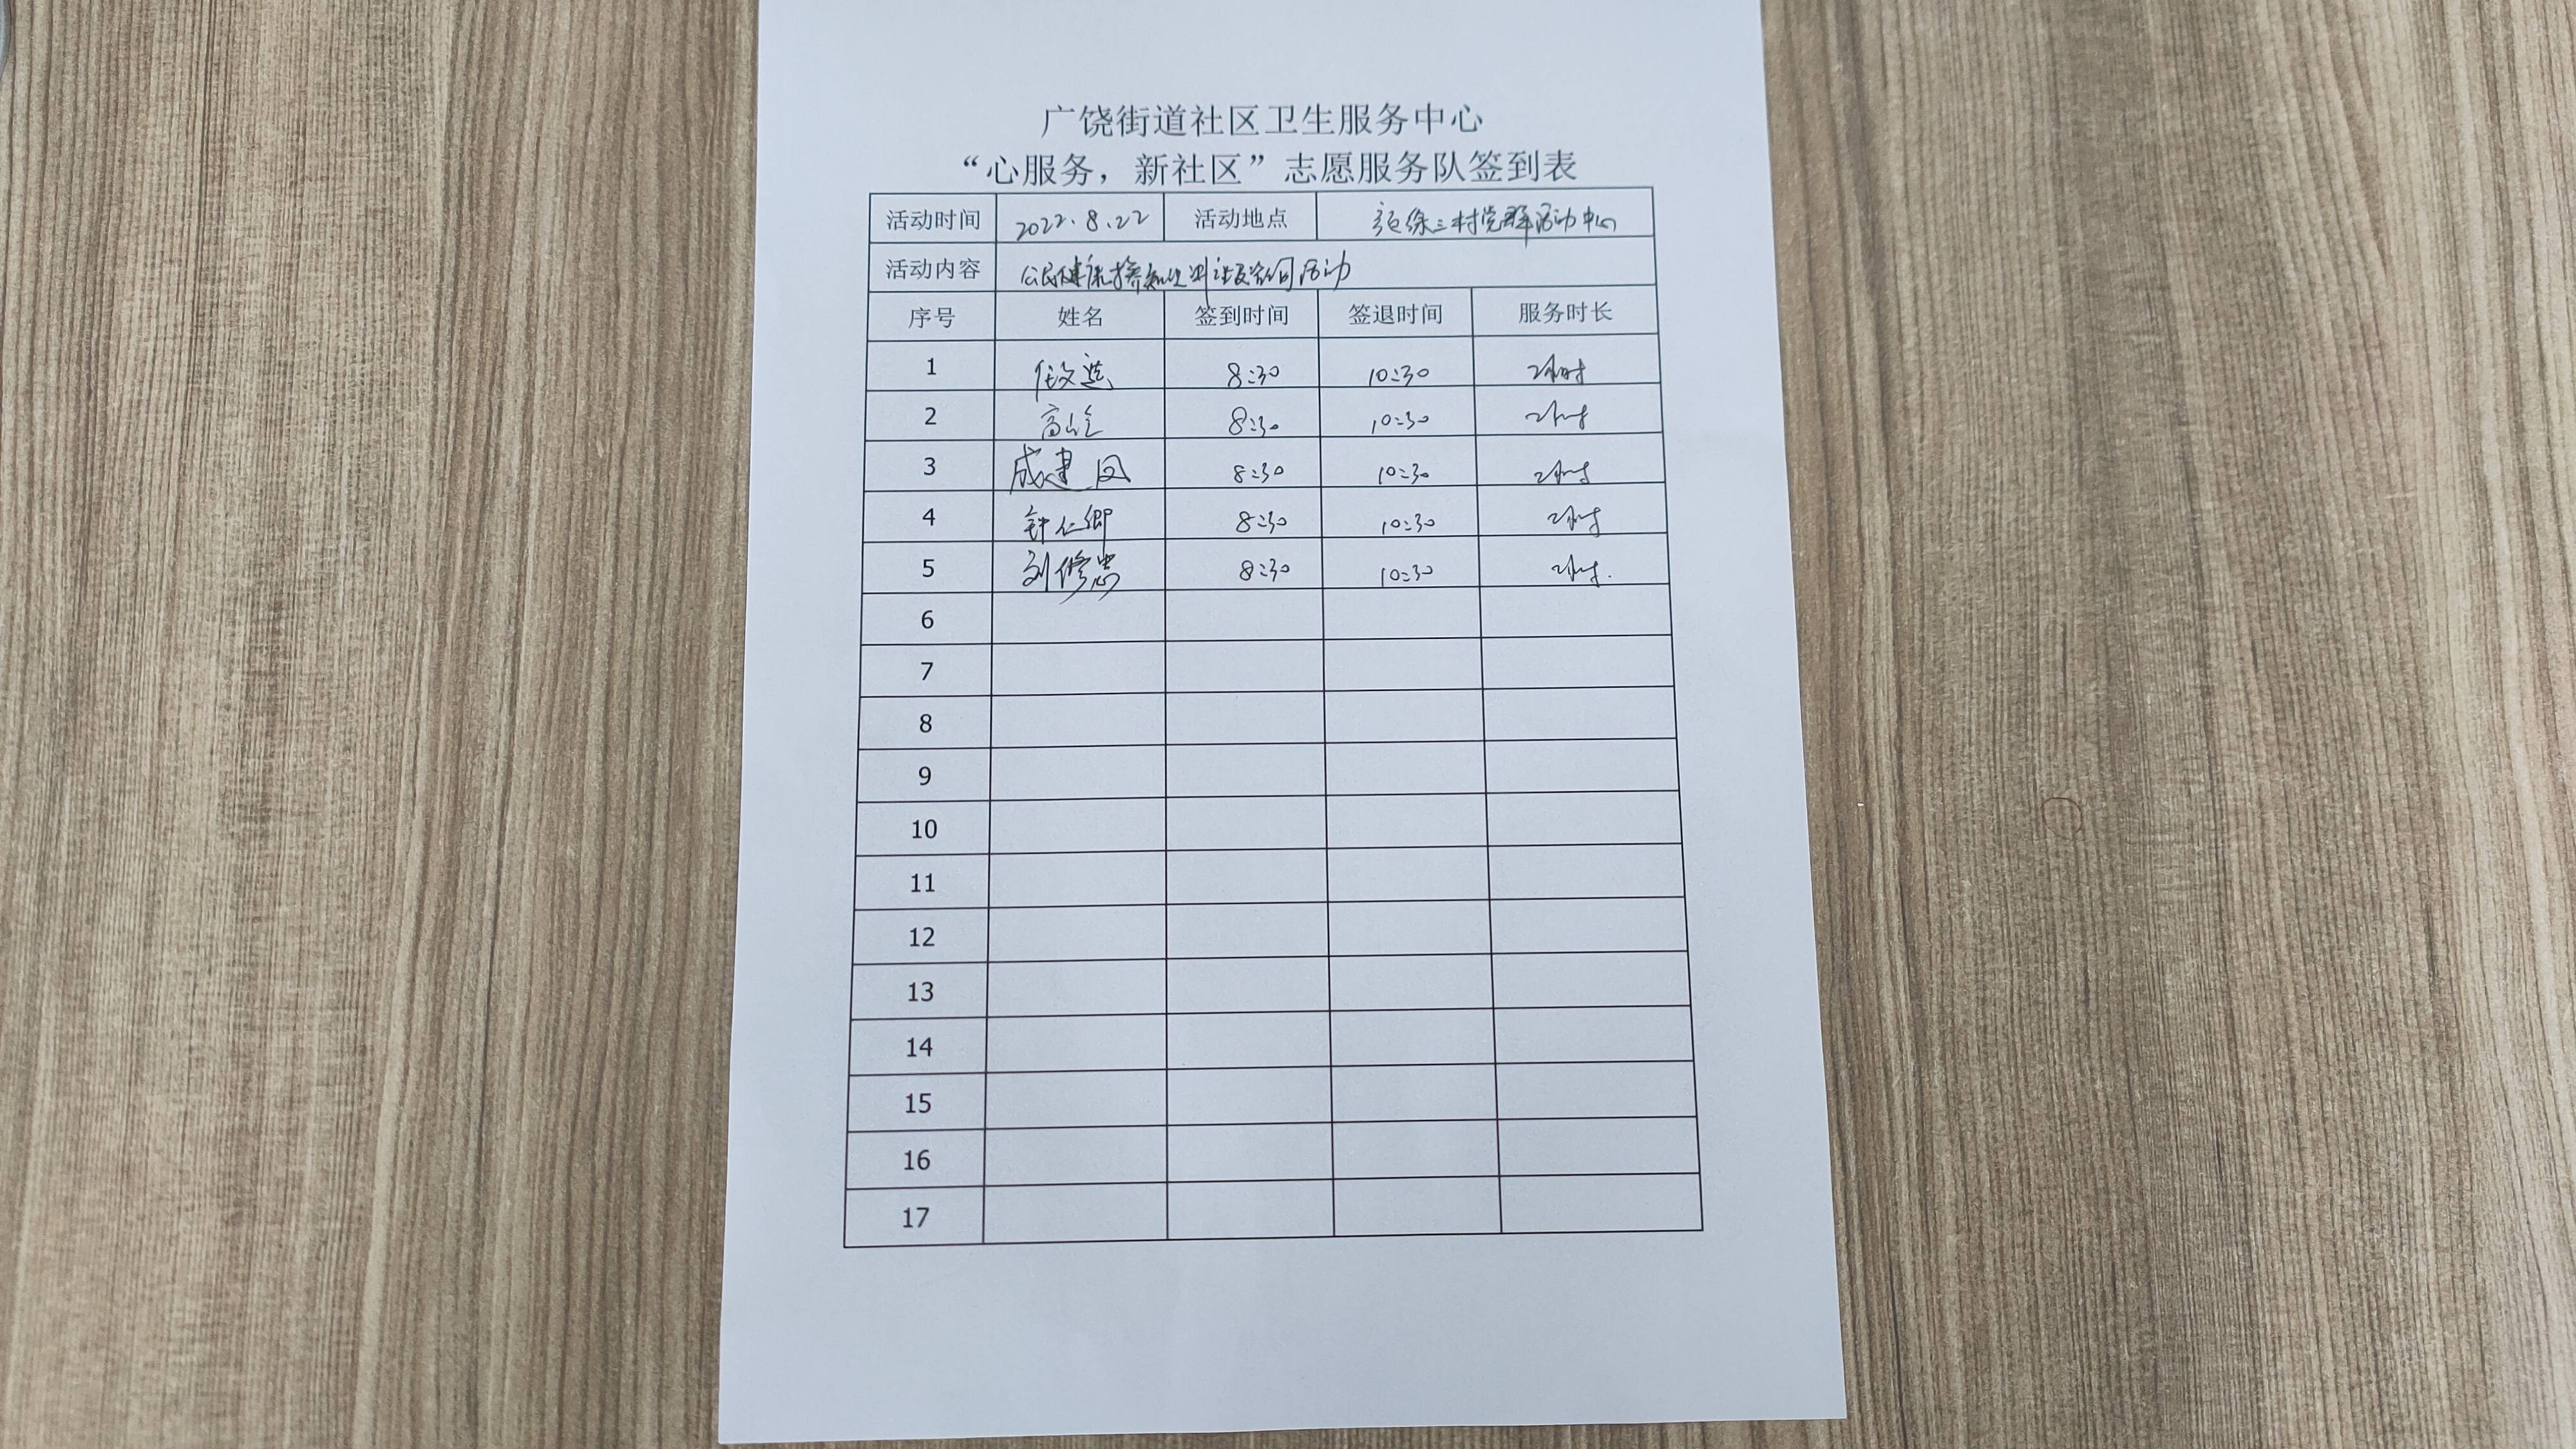 广饶街道社区卫生服务中心
“心服务，新社区”志愿服务队签到表
活动时间 2022.8.22 活动地点 徐三村党群活动中心
活动内容 公民健康素养知识讲座及咨询活动
序号 姓名 签到时间 签退时间 服务时长
1 任文 8:30 10:30 2小时
2 高 8:30 10:30 2小时
3 成建 8:30 10:30 2小时
4 钟仁卿 8:30 10:30 2小时
5 刘修忠 8:30 10:30 2小时.
6
7
8
9
10
11
12
13
14
15
16
17